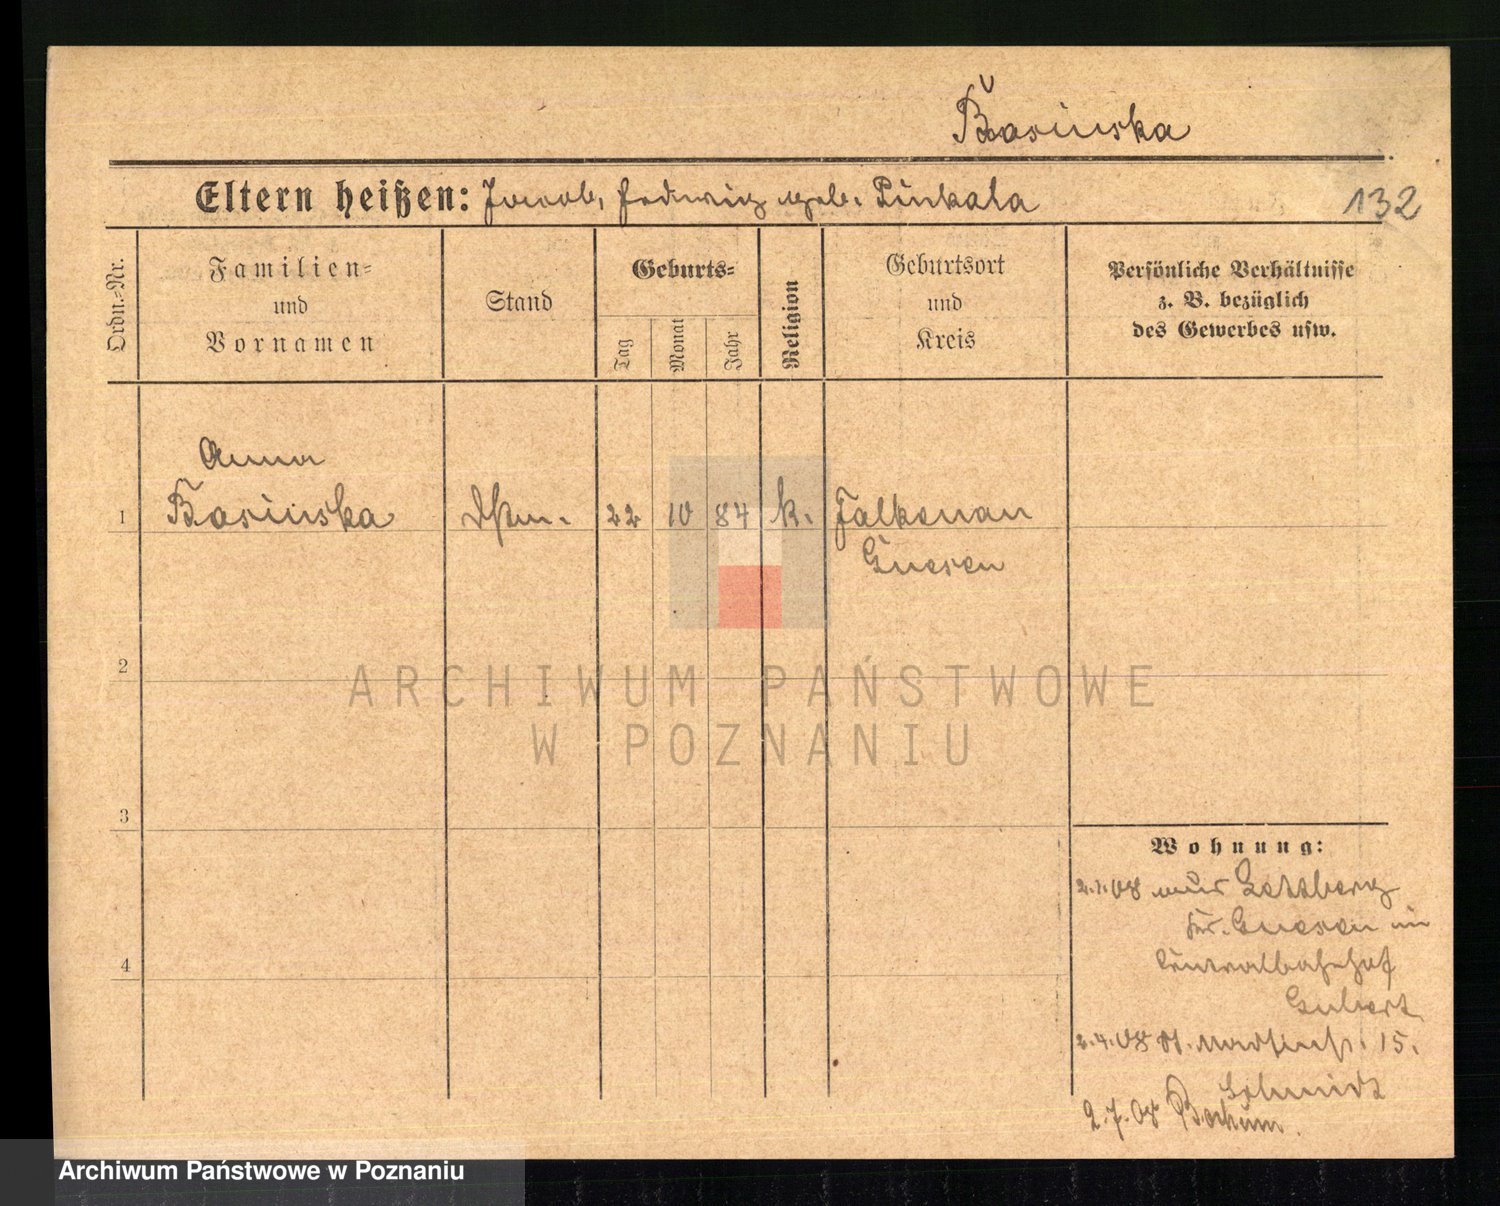 Basinska
Eltern heißen: Jacob, Hedwig geb. Pinkala
132
Ordn.=Nr.
Familien=
und
Vornamen
Stand
Geburts=
Tag
Monat
Jahr
Religion
Geburtsort
und
Kreis
Persönliche Verhältnisse
z. B. bezüglich
des Gewerbes usw.
Anna
1 Basinska 22 10 84 k. Falkenau
Gnesen
2
3
4
ARCHIWUM PAŃSTWOWE
W POZNANIU
Wohnung:
2.1.08
Kr. Gnesen im
Centralbahnhof
2.4.08 15.
Schmidt
2.7.08 Bochum.
Archiwum Państwowe w Poznaniu